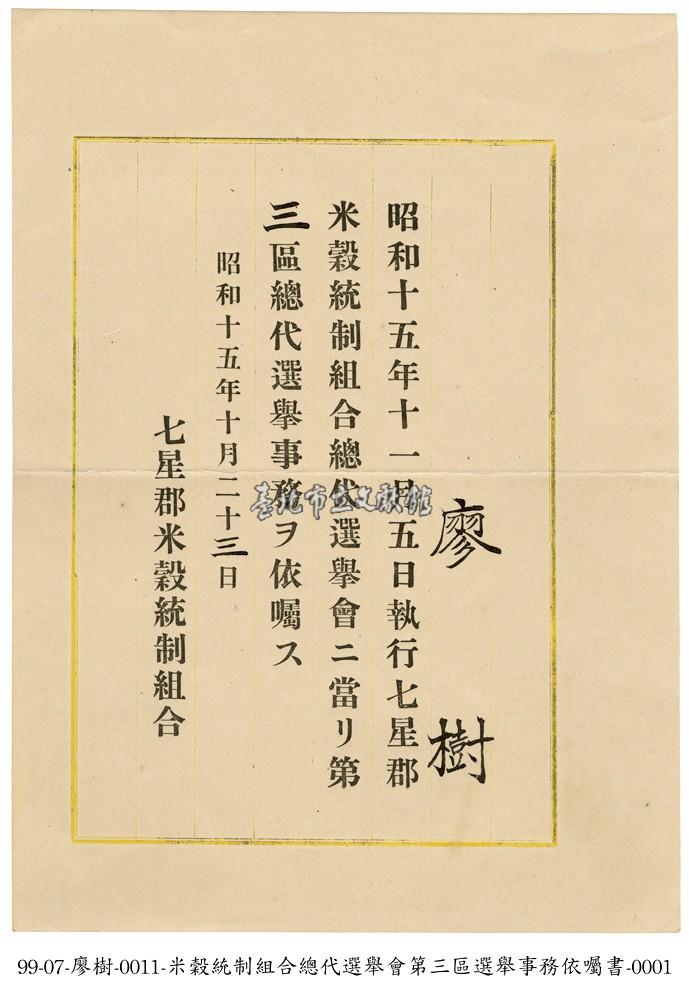 廖樹
昭和十五年十一月五日執行七星郡
米穀統制組合總代選擧會ニ當リ第
三區總代選擧事務ヲ依囑ス
昭和十五年十月二十三日
七星郡米穀統制組合
臺北市立文獻館
99-07-廖樹-0011-米穀統制組合總代選舉會第三區選舉事務依囑書-0001